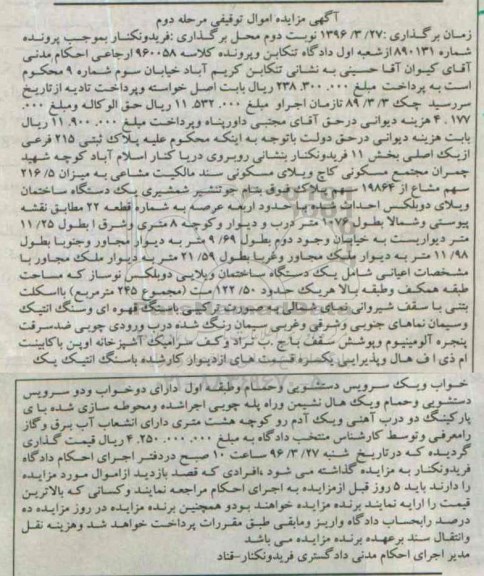 آگهی مزایده اموال توقیفی مرحله دوم
زمان برگذاری :۱۳۹۶/۳/۲۷ نوبت دوم محل برگذاری :فریدونکنار بموجب پرونده
شماره ۸۹۰۱۳۱ ازشعبه اول دادگاه تنکابن و پرونده کلاسه ۹۶۰۰۵۸ ارجاعی احکام مدنی
آقای کیوان آقا حسینی به نشانی تنکابن کریم آباد خیابان سوم شماره ۹ محکوم
است به پرداخت مبلغ ۲۳۸.۳۰۰.۰۰۰ ریال بابت اصل خواسته وپرداخت تادیه از تاریخ
سررسید چک ۸۹/۳/۳ تازمان اجراو مبلغ ۱۱.۵۳۲.۰۰۰ ریال حق الوکاله ومبلغ ۰۰۰.
۴.۱۷۷ هزینه دیوانی درحق آقای مجتبی داورپناه وپرداخت مبلغ ۱۱.۹۰۰.۰۰۰ ریال
بابت هزینه دیوانی درحق دولت باتوجه به اینکه محکوم علیه پلاک ثبتی ۲۱۵ فرعی
ازیک اصلی بخش ۱۱ فریدونکنار بنشانی روبروی دریا کنار اسلام آباد کوچه شهید
چمران مجتمع مسکونی کاج ویلای مسکونی سند مالکیت مشاعی به میزان ۲۱۶/۵
سهم مشاع از ۱۹۸۶۴ سهم پلاک فوق بنام جونتشیر شمشیری یک دستگاه ساختمان
ویلای دوبلکس احداث شده با حدود اربعه عرصه به شماره قطعه ۲۲ مطابق نقشه
پیوستی وشمالا بطول ۱۰/۷۶ متر درب و دیوار وکوچه ۸ متری وشرق ا بطول ۱۱/۲۵
متر دیواریست به خیابان وجود دوم بطول ۹/۶۹ متر به دیوار مجاور وجنوبا بطول
۱۱/۹۸ متر به دیوار ملک مجاور وغربا بطول ۲۱/۵۹ متر به دیوار ملک مجاور با
مشخصات اعیانی شامل یک دستگاه ساختمان ویلایی دوبلکس نوساز که مساحت
طبقه همکف وطبقه بالا هریک حدود ۱۲۲/۵۰ مت (مجموع ۲۴۵ مترمربع) بااسکلت
بتنی با سقف شیروانی نمای شمالی به صورت ترکیبی باسنگ قهوه ای وسنگ انتیک
وسیمان نماهای جنوبی وشرقی وغربی سیمان رنگ شده درب ورودی چوبی ضدسرقت
پنجره آلومینیوم وپوشش سقف با چ .ب تراد وکف سرامیک آشپزخانه اوپن باکابینت
ام دی ا ف هال وپذیرایی یکسره قسمت های ازدیوار کارشده باسنگ انتیک یک
خواب ویک سرویس دستشویی وحمام وطبقه اول دارای دوخواب ودو سرویس
دستشویی وحمام ویک هال نشیمن وراه پله چوبی اجراشده ومحوطه سازی شده با ی
پارکینگ دو درب آهنی ویک آدم رو کوچه هشت متری دارای انشعاب آب برق وگاز
رامعرفی وتوسط کارشناس منتخب دادگاه به مبلغ ۴.۲۵۰.۰۰۰.۰۰۰ ریال قیمت گذاری
گردیده که درتاریخ شنبه ۹۶/۳/۲۷ ساعت ۱۰ صبح دردفتر اجرای احکام دادگاه
فریدونکنار به مزایده گذاشته می شود ،افرادی که قصد بازدید ازاموال مورد مزایده
را دارند باید ۵ روز قبل ازمزایده به اجرای احکام مراجعه نمایند وکسانی که بالاترین
قیمت را ارایه نمایند برنده مزایده خواهند بودو همچنین برنده مزایده در روز مزایده ده
درصد رابحساب دادگاه واریز ومابقی طبق مقررات پرداخت خواهد شد وهزینه نقل
وانتقال سند برعهده برنده مزایده می باشد
مدیر اجرای احکام مدنی دادگستری فریدونکنار-قناد